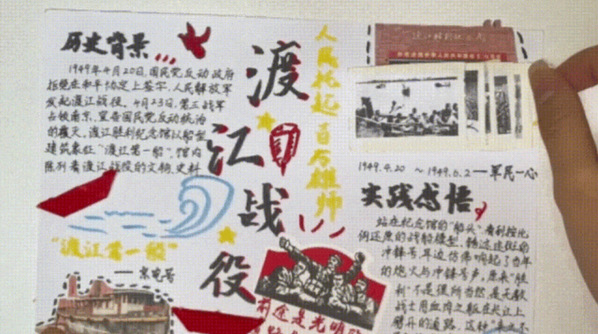 历史背景
1949年4月20日,国民党反动政府
拒绝在和平协定上签字,人民解放军
发起渡江战役。4月23日,第三战军
占领南京,宣告国民党反动统治
的覆灭。渡江胜利纪念馆以船型
建筑象征"渡江第一船",馆内
陈列着渡江战役的文物,史料
"渡江第一船"
——京电号
渡江战役
人民托起百万雄师
前途是光明
1949.4.20 ~1949.6.2 —军民一心
实践感悟
站在纪念馆的"船头",看到按比
例还原的战船模型,
冲锋号,耳边仿佛响起了当年
的炮火与冲锋号声,原来"胜
利"不是很所当然,是无数
战士用血肉之躯在长江上